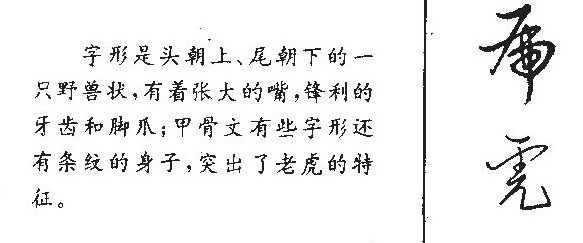 字形是头朝上、尾朝下的一
只野兽状,有着张大的嘴,锋利的
牙齿和脚爪;甲骨文有些字形还
有条纹的身子,突出了老虎的特
征。
虎
虎